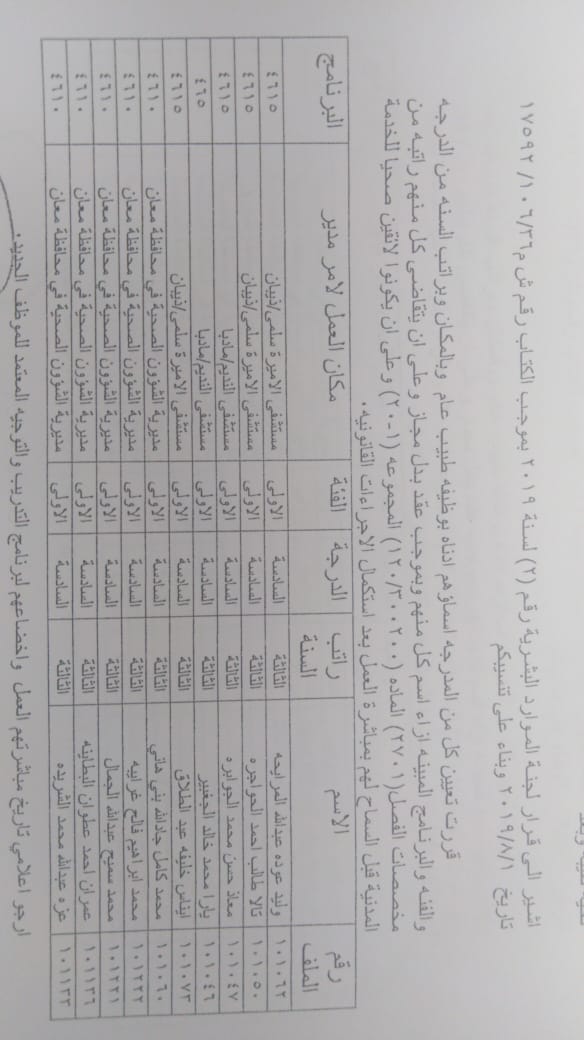 اشير الى قرار لجنة الموارد البشرية رقم (٢) لسنة ٢٠١٩ بموجب الكتاب رقم ش م١٠٦/٣٦/ ١٧٥٩٢
تاريخ ٢٠١٩/٨/١ وبناء على تنسيبكم
قررت تعيين كل من المدرجه اسماؤهم ادناه بوظيفه طبيب عام وبالمكان وبراتب السنه من الدرجه
والفئه والبرنامج المبينه ازاء اسم كل منهم وبموجب عقد بدل مجاز وعلى ان يتقاضى كل منهم راتبه من
مخصصات الفصل(٢٧٠١) الماده (١٢٠/٣٠٠٢٠٠) المجموعه (١-٢٠) وعلى ان يكونوا لائقين صحيا للخدمة
المدنية قبل السماح لهم بمباشرة العمل بعد استكمال الاجراءات القانونيه.
رقم الملف الاسم راتب السنة الدرجة الفئة مكان العمل لامر مدير البرنامج
١٠١٠٦٢ وليد عوده عبدالله المرايحه الثالثة السادسة الاولى مستشفى الاميرة سلمى/ذيبان ٤٦١٥
١٠١٠٥٠ تالا طالب احمد الحواجره الثالثة السادسة الاولى مستشفى الاميرة سلمى/ذيبان ٤٦١٥
١٠١٠٤٧ معاذ حسن محمد الجوابره الثالثة السادسة الاولى مستشفى النديم/مادبا ٤٦١٥
١٠١٠٤٦ يارا محمد خالد الجغبير الثالثة السادسة الاولى مستشفى النديم/مادبا ٤٦٥
١٠١٠٧٣ ايناس خليفه عبد الطلاق الثالثة السادسة الاولى مستشفى الاميرة سلمى/ذيبان ٤٦١٥
١٠١٠٦٠ محمد كامل جادالله بني هاني الثالثة السادسة الاولى مديرية الشؤون الصحية في محافظة معان ٤٦١٠
١٠١٢٢٢ محمد ابراهيم فالح غرايبه الثالثة السادسة الاولى مديرية الشؤون الصحية في محافظة معان ٤٦١٠
١٠١٢٢١ محمد سميح عبدالله الجمال الثالثة السادسة الاولى مديرية الشؤون الصحية في محافظة معان ٤٦١٠
١٠١١٣٦ عمران احمد عطوان البطاينه الثالثة السادسة الاولى مديرية الشؤون الصحية في محافظة معان ٤٦١٠
١٠١١٣٣ عزه عبدالله محمد الشريده الثالثة السادسة الاولى مديرية الشؤون الصحية في محافظة معان ٤٦١٠
ارجو اعلامي تاريخ مباشرتهم العمل واخضاعهم لبرنامج التدريب والتوجيه المعتمد للموظف الجديد.